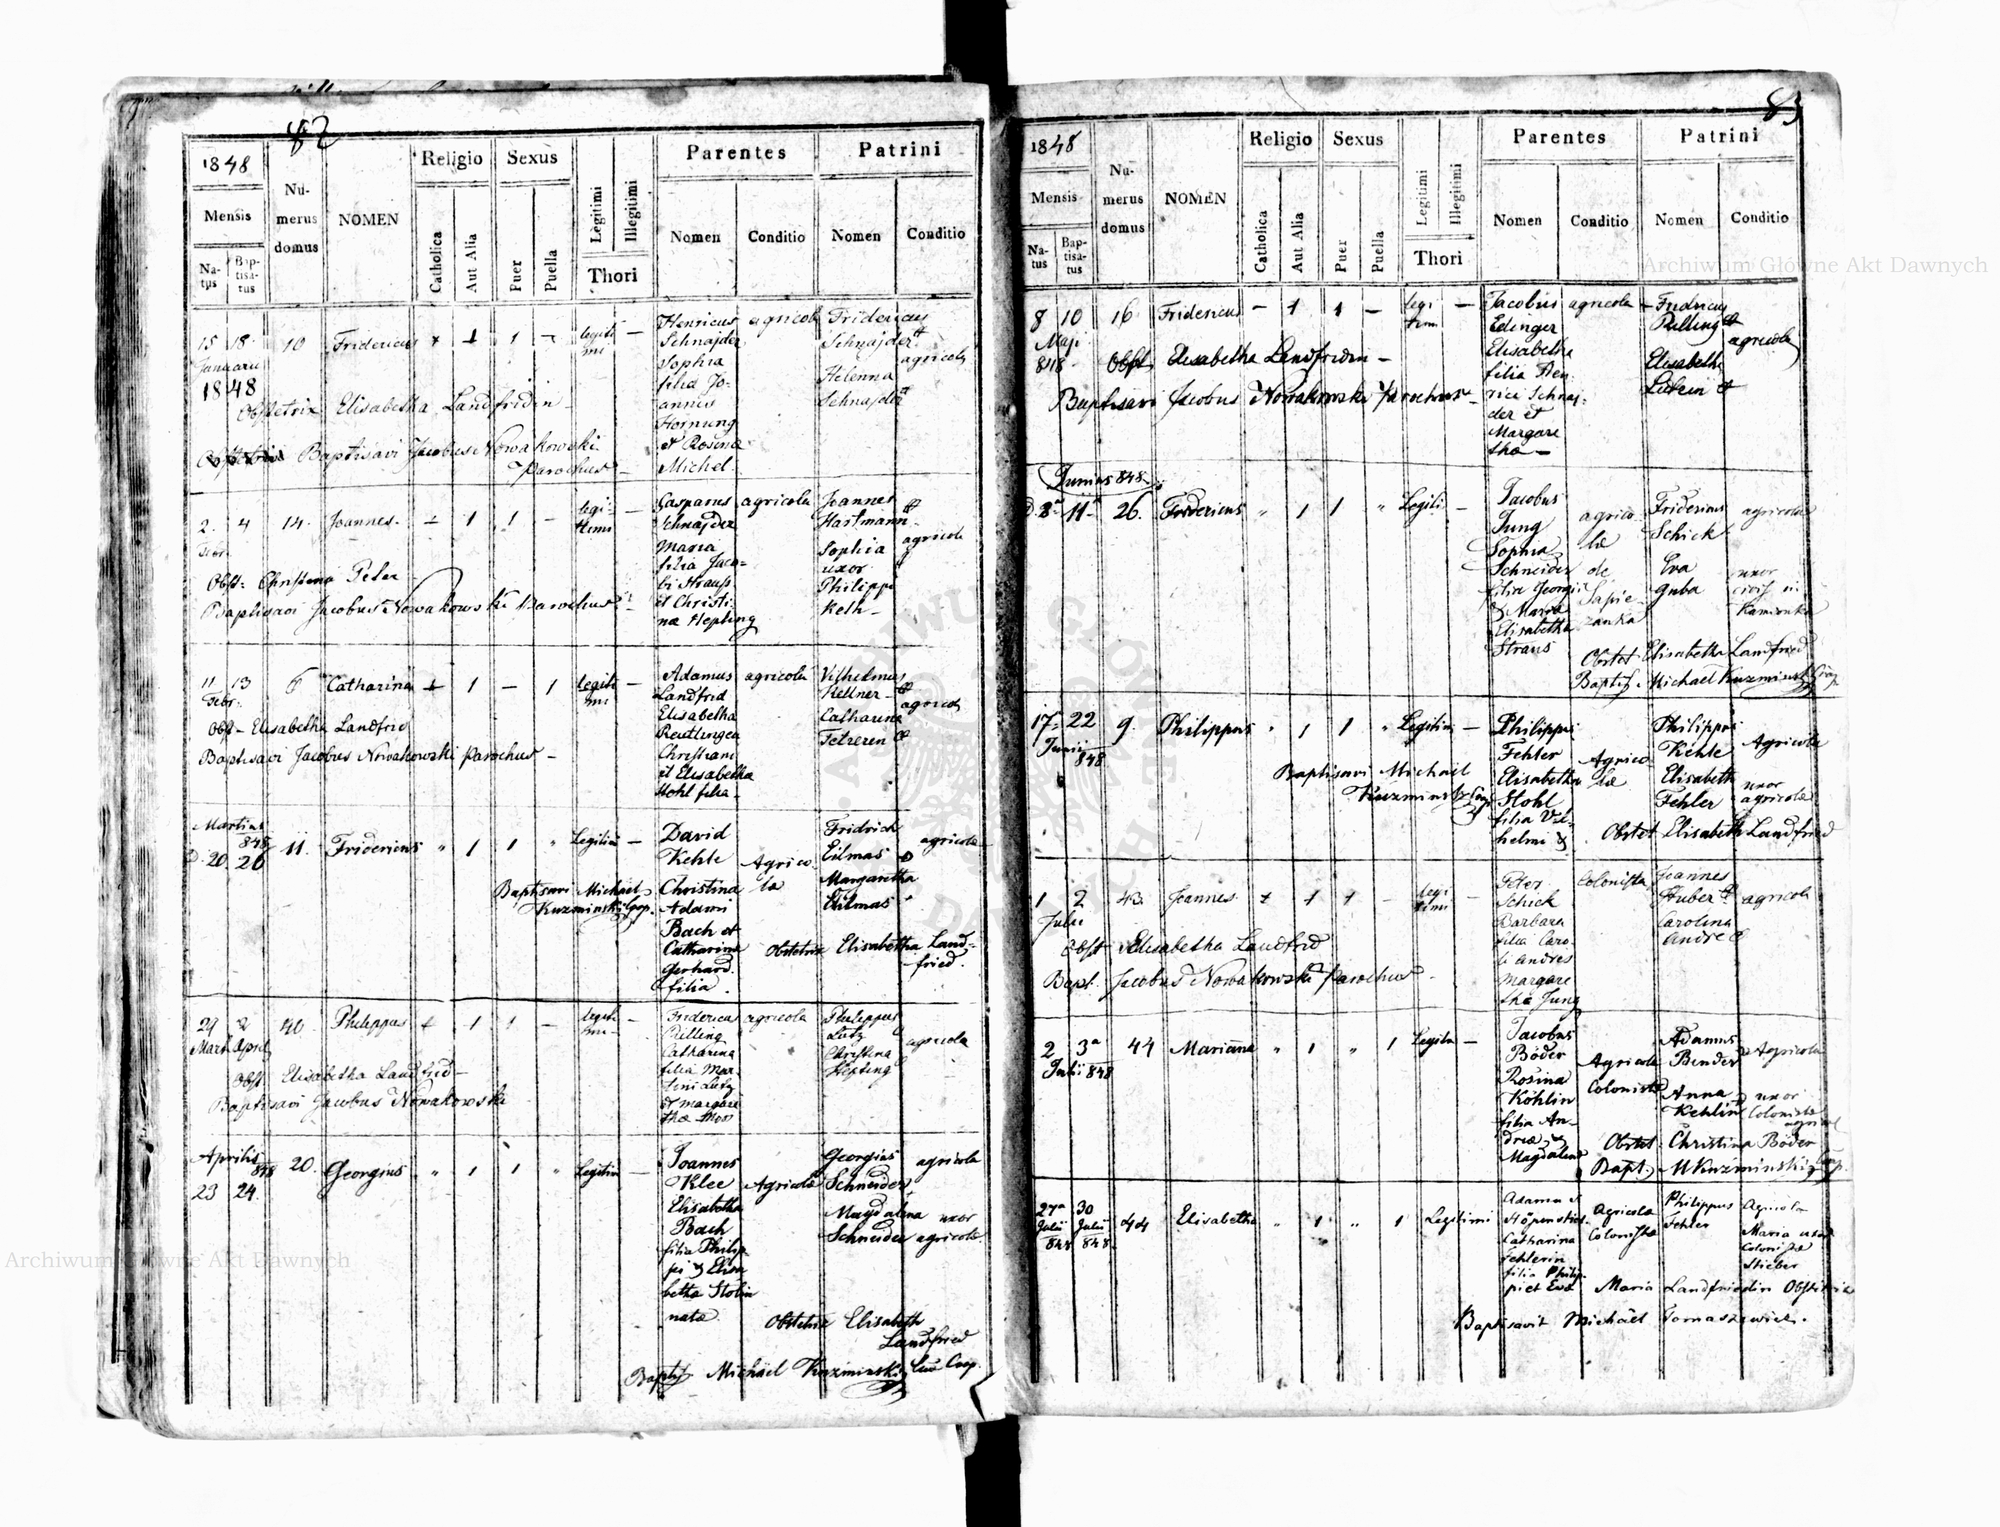 82
1848
Mensis
Natus
Baptisatus
Numerus domus
NOMEN
Religio
Catholica
Aut Alia
Sexus
Puer
Puella
Legitimi
Illegitimi
Thori
Parentes
Nomen
Conditio
Patrini
Nomen
Conditio
15 18
Januarii
1848
10
Fridericus
1
1
legiti
mi
Henricus
Schnajder
Sophia
filia Jo-
annis
Hornung
et Rosina
Michel.
agricola
Fridericus
Schnajder
Helenna
Schnajder
agricola
Obstetrix Elisabetha Landfridin
Baptisavi Jacobus Nowakowski
Parochus
2. 4
Febr.
14.
Joannes.
1
1
legi-
timi
Casparus
Schnajder
Maria
filia Jaco-
bi Strauss
et Christi-
na Hepting
agricola
Joannes
Hartmann
Sophia
uxor
Philippi
Keth
agricola
Obst: Christina Peter
Baptisavi Jacobus Nowakowski Parochus
11 13
Febr.
6
Catharina
1
1
legiti
mi
Adamus
Landfrid
Elisabetha
Reutlinger
Christiani
et Elisabetha
Stohl filia
agricola
Vilhelmus
Kellner
Catharina
agricola
Obst- Elisabetha Landfrid
Baptisavi Jacobus Nowakowski parochus
Martius
848
D. 20. 26
11.
Fridericus
1
1
Legitim
David
Kehle
Christina
Adami
Bach et
Catharina
Gerhard.
filia.
Agrico
la
Fridrich
Eilmas
Margaretha
Eilmas
agricola
Baptisavi Michael
Kuzminski Coop.
Obstetrix Elisabetha Land-
fried.
29 2
Mart April
40
Philippus
1
1
legiti
mi
Fridericus
Pilling
Catharina
filia Mar-
tini Lutz
et Margare
tha Moos
agricola
Philippus
Lutz
Christina
Hepting
agricola
Obst Elisabetha Landfrid
Baptisavi Jacobus Nowakowski
Aprilis
848
23 24.
20.
Georgius
1
1
Legitim
Joannes
Klee
Elisabetha
Bach
filia Philip
pi & Elisa
betha Stolin
nata
Agricola
Georgius
Schneider
Magdalena
Schneider
agricola
uxor
agricola.
Obstetrix Elisabeth
Landfried
Baptis Michael Kuzminski Coop.
83
1848
Mensis
Natus
Baptisatus
Numerus domus
NOMEN
Religio
Catholica
Aut Alia
Sexus
Puer
Puella
Legitimi
Illegitimi
Thori
Parentes
Nomen
Conditio
Patrini
Nomen
Conditio
8 10
Maji
848
16
Fridericus
1
1
legi
timi
Jacobus
Edinger
Elisabetha
filia Hen
rici Schnaj-
der et
Margare
tha
agricola
Fridricus
Pilling
Elisabetha
agricola
Obst Elisabetha Landfridin
Baptisavi Jacobus Nowakowski Parochus
Junius 848.
11
26.
Fridericus
1
1
Legiti
Jacobus
Jung
Sophia
Schneider
filia Georgii
& Maria
Elisabetha
Straus
agrico
la
de
Sapie-
zanka
Fridericus
Schick
Eva
Guba
agricola
uxor
in
Kamionka
Obstet Elisabetha Landfried
Baptis. Michael Kuzminski Coop
17 22
Junii 848
9.
Philippus
1
1
Legitim
Philippus
Fehler
Elisabetha
Stohl
filia Vil-
helmi &
Agrico
la
Philippus
Kehle
Elisabeth
Fehler
Agricola
uxor
agricola
Baptisavi Michael
Kuzminski Coop
Obstet Elisabeth Landfried
1 2
Julii
43.
Joannes
1
1
legi
timi
Peter
Schick
Barbara
filia Caro-
li Andres
Margare
tha Jung
Colonista
Joannes
Huber
Carolina
Andre
agricola
Obst Elisabetha Landfrid
Bapt. Jacobus Nowakowski Parochus
2 3a
Julii 848
44
Marianna
1
1
Legitim
Jacobus
Böder
Rosina
Köhlin
filia An-
dreæ &
Magdalena
Agricola
Colonista
Adamus
Bender
Anna
Kehlin
Agricola
uxor
Colonista
Obstet. Christina Böder
Bapt. M Kuzminski Coop.
27a 30
Julii Julii
848 848.
44
Elisabetha
1
1
Legitimi
Adamus
Catharina
Fehlerin
filia Philip
pi et Eva
Agricola
Colonista
Philippus
Fehler
Agricola
Maria uxor
Colonistæ
Stieber
Maria Landfriedin Obstetrix
Baptisavit Michael Tomaszewicz.
Archiwum Główne Akt Dawnych
Archiwum Główne Akt Dawnych